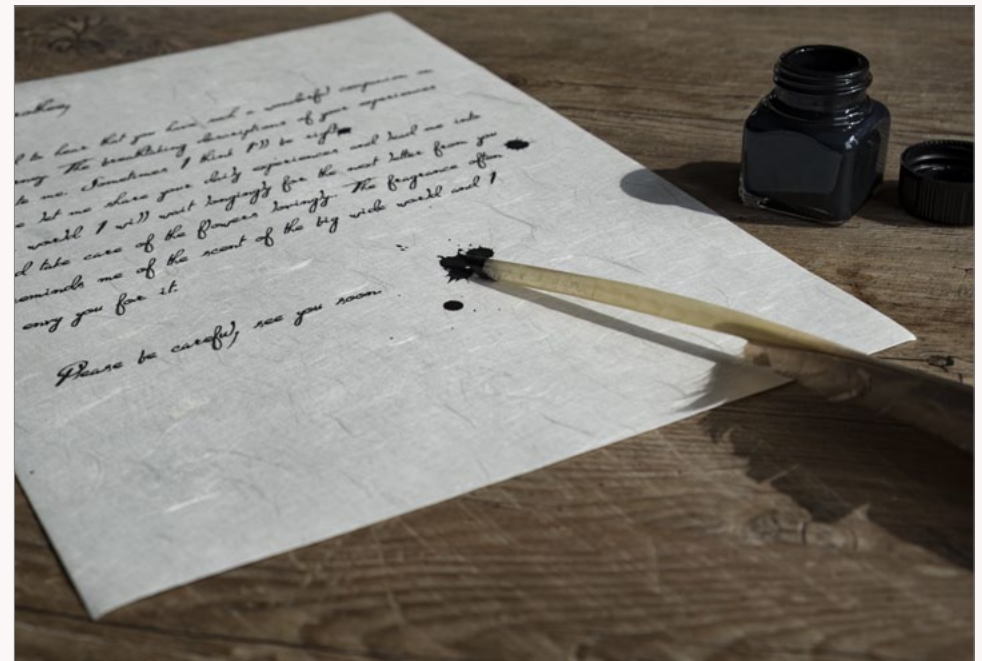 to hear that you have such a wonderful companion on
The breathtaking descriptions of your experiences
to me. Sometimes I think I'll be right
let me share your daily experiences and lead me into
world I will wait longingly for the next letter from you
take care of the flowers lovingly. The fragrance often
reminds me of the scent of the big wide world and I
envy you for it.
Please be careful, see you soon.